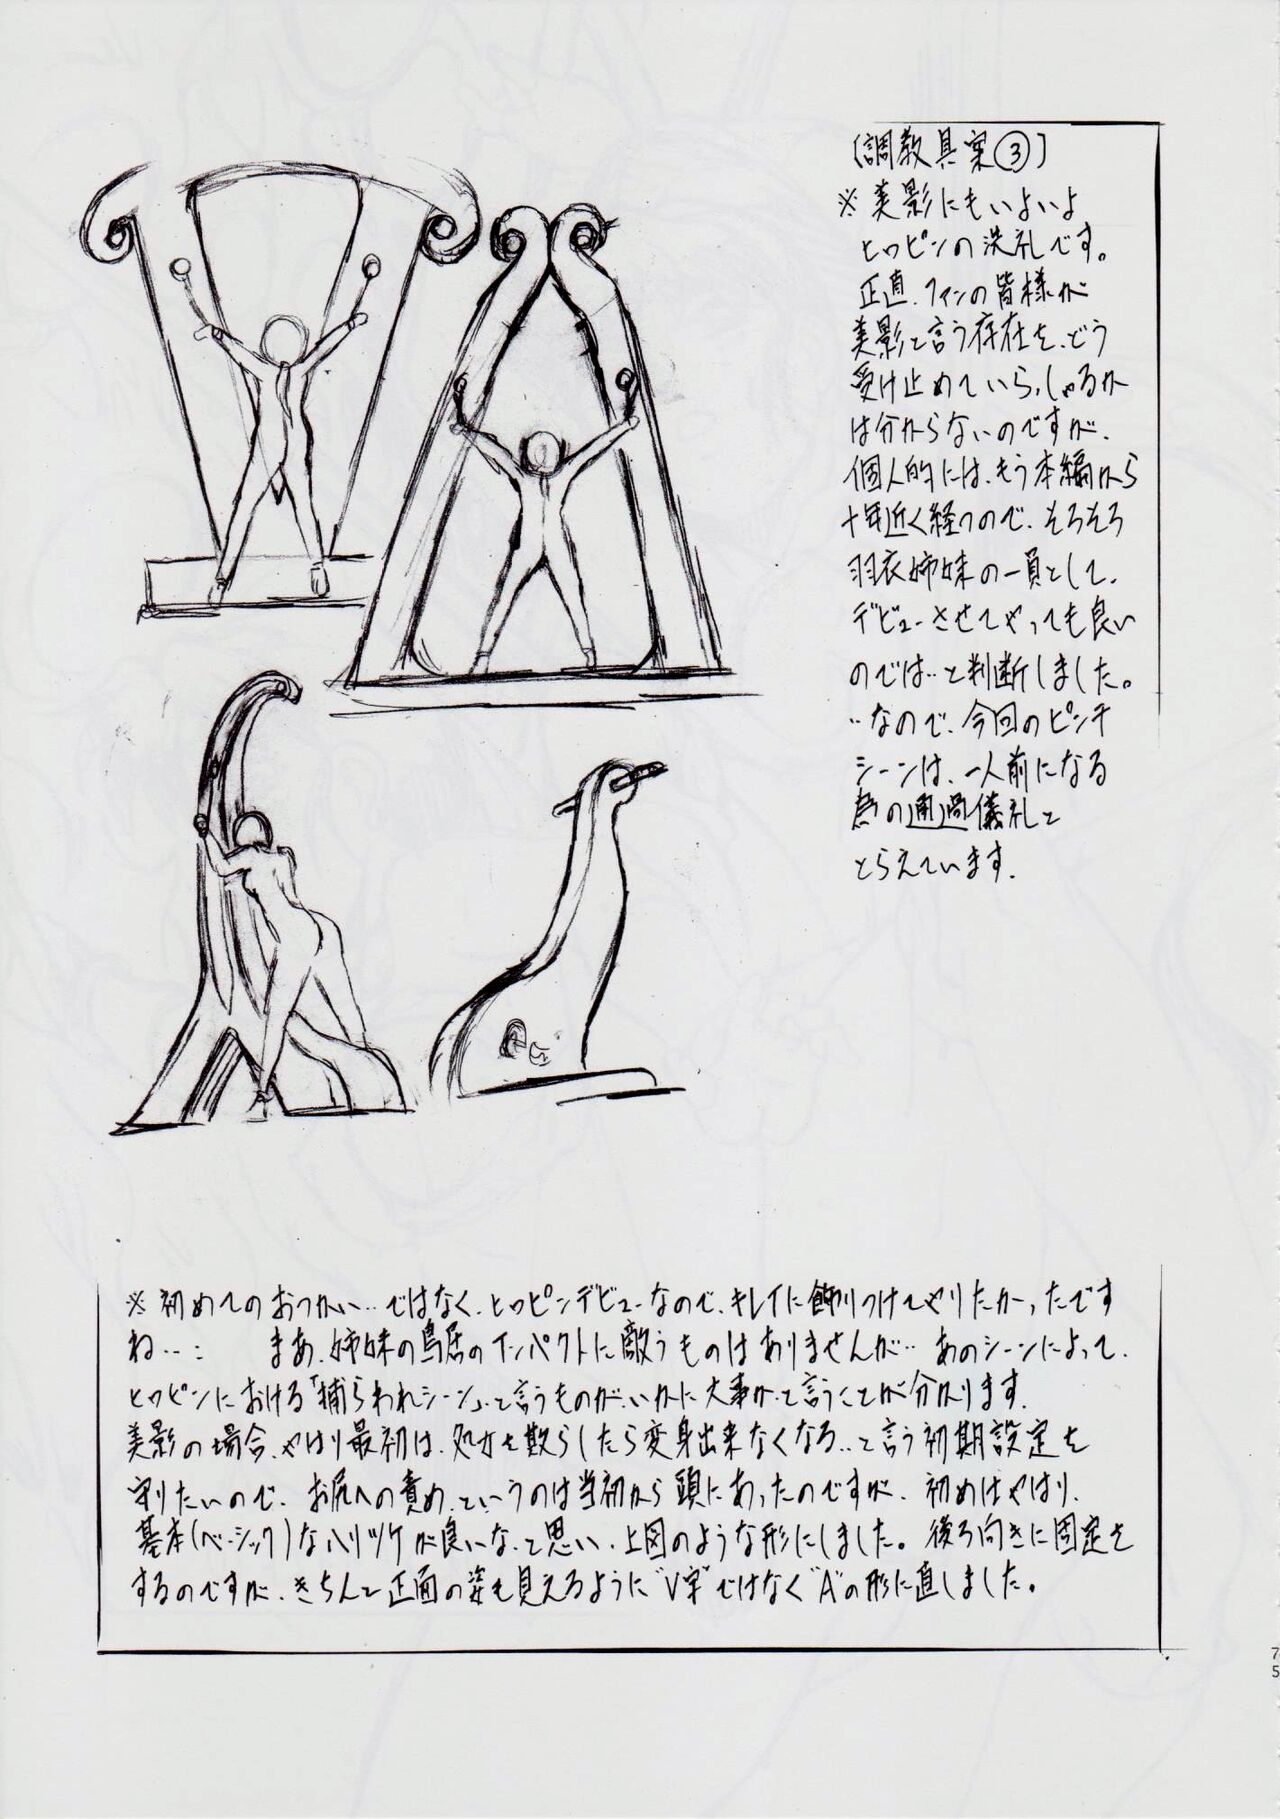 〔調教具案③〕
※美影にもいよいよ
ヒロピンの洗礼です。
正直、ファンの皆様が
美影と言う存在を、どう
受け止めていらっしゃるか
は分からないのですが、
個人的には、もう本編から
十年近く経つので、そろそろ
羽衣姉妹の一員として、
デビューさせてやっても良い
のでは‥と判断しました。
‥なので、今回のピンチ
シーンは、一人前になる
為の通過儀礼と
とらえています.
※初めてのおつかい‥ではなく、ヒロピンデビューなので、キレイに飾りつけてやりたかったです
ね‥： まあ、姉妹の鳥居のインパクトに敵うものはありませんが‥あのシーンによって、
ヒロピンにおける「捕らわれシーン」と言うものが、いかに大事かと言うことが分かります.
美影の場合、やはり最初は、処女を散らしたら変身出来なくなる‥と言う初期設定を
守りたいので、お尻への責め、というのは当初から頭にあったのですが、初めはやはり、
基本(ベーシック)なハリツケが良いな、と思い、上図のような形にしました。後ろ向きに固定を
するのですが、きちんと正面の姿も見えるように"V字"ではなく"A"の形に直しました。
75